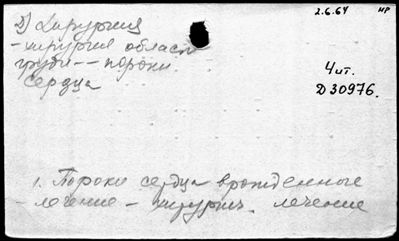 2.6.64 НР
2) Хирургия
- хирургия област
груди -- пороки
сердца
Чит.
Д 30976.
1. Пороки сердца врожденные
лечение - хирургич. лечение